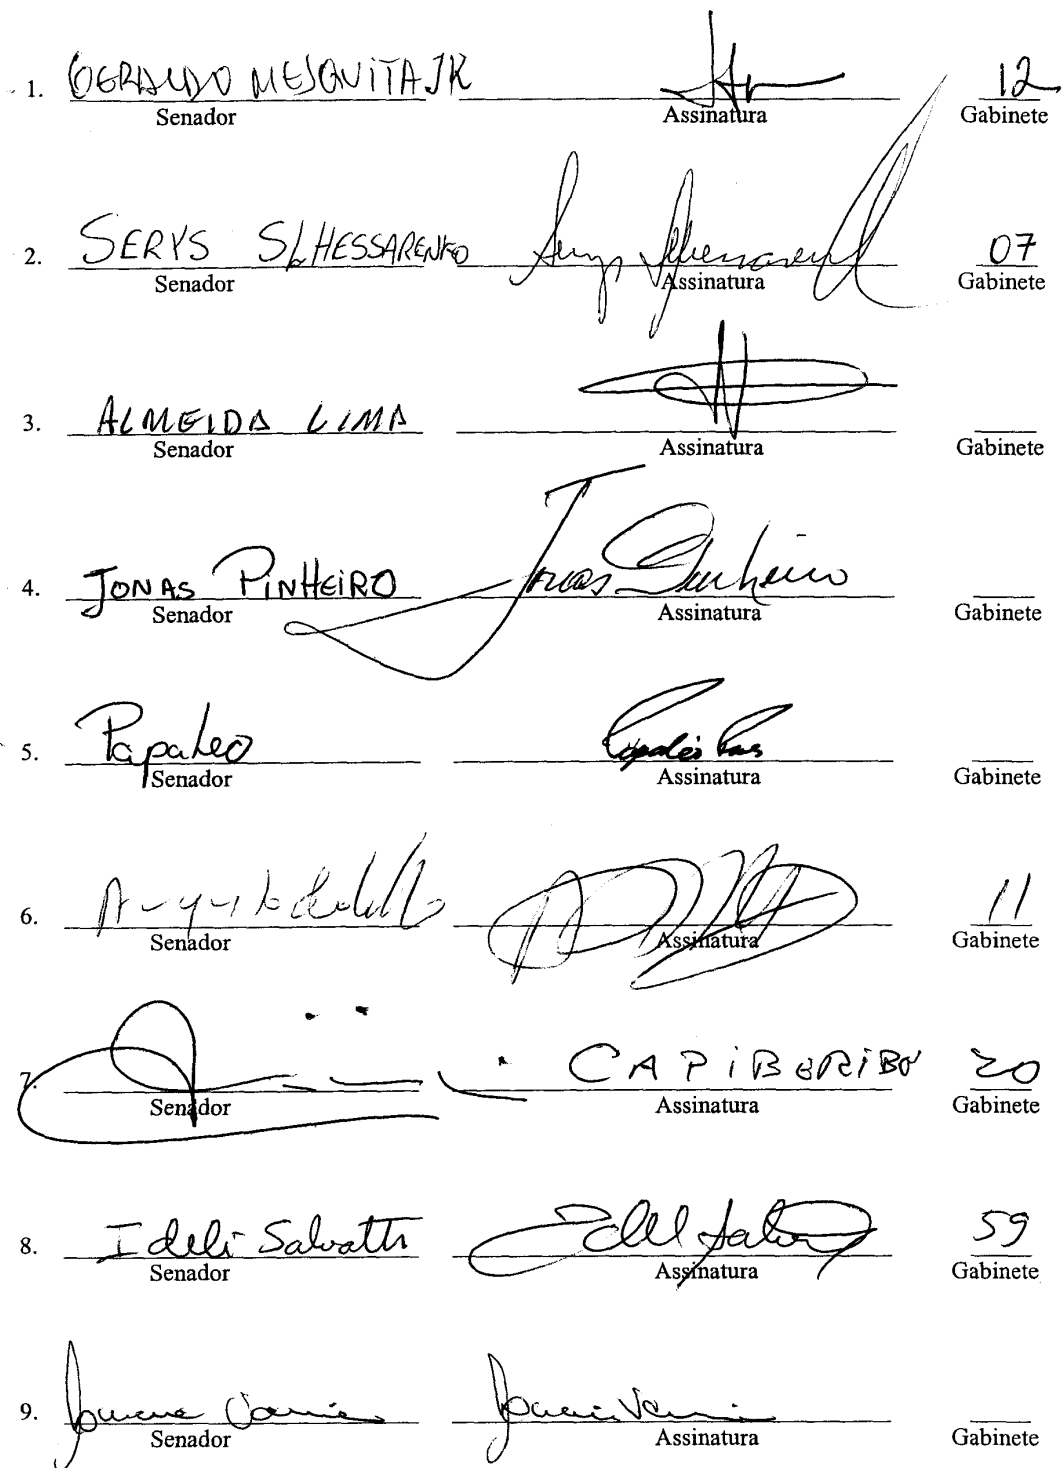 1. GERALDO MESQUITA JR 12
Senador Assinatura Gabinete
2. SERYS SLHESSARENKO Serys Slhessarenko 07
Senador Assinatura Gabinete
3. ALMEIDA LIMA
Senador Assinatura Gabinete
4. JONAS PINHEIRO Jonas Pinheiro
Senador Assinatura Gabinete
5. Papaleo Papaléo Paes
Senador Assinatura Gabinete
6. Augusto Botelho 11
Senador Assinatura Gabinete
7. CAPIBERIBE 20
Senador Assinatura Gabinete
8. Ideli Salvatti Ideli Salvatti 59
Senador Assinatura Gabinete
9.
Senador Assinatura Gabinete